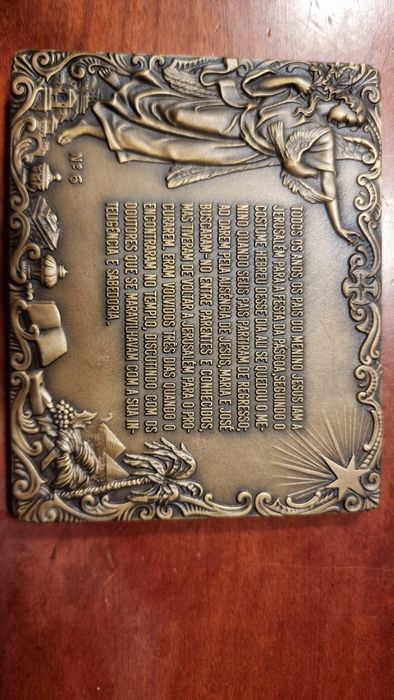 TODOS OS ANOS OS PAIS DO MENINO JESUS IAM A
JERUSALÉM PARA A FESTA DA PÁSCOA, SEGUINDO O
COSTUME HEBREU. NESSE DIA, ALI SE QUEDOU O ME-
NINO QUANDO SEUS PAIS PARTIRAM DE REGRESSO;
AO DAREM PELA AUSÊNCIA DE JESUS, MARIA E JOSÉ
BUSCARAM-NO ENTRE PARENTES E CONHECIDOS
MAS TIVERAM DE VOLTAR A JERUSALÉM PARA O PRO-
CURAREM. ERAM VOLVIDOS TRÊS DIAS QUANDO O
ENCONTRARAM NO TEMPLO, DISCUTINDO COM OS
DOUTORES QUE SE MARAVILHAVAM COM A SUA IN-
TELIGÊNCIA E SABEDORIA.
Nº 6